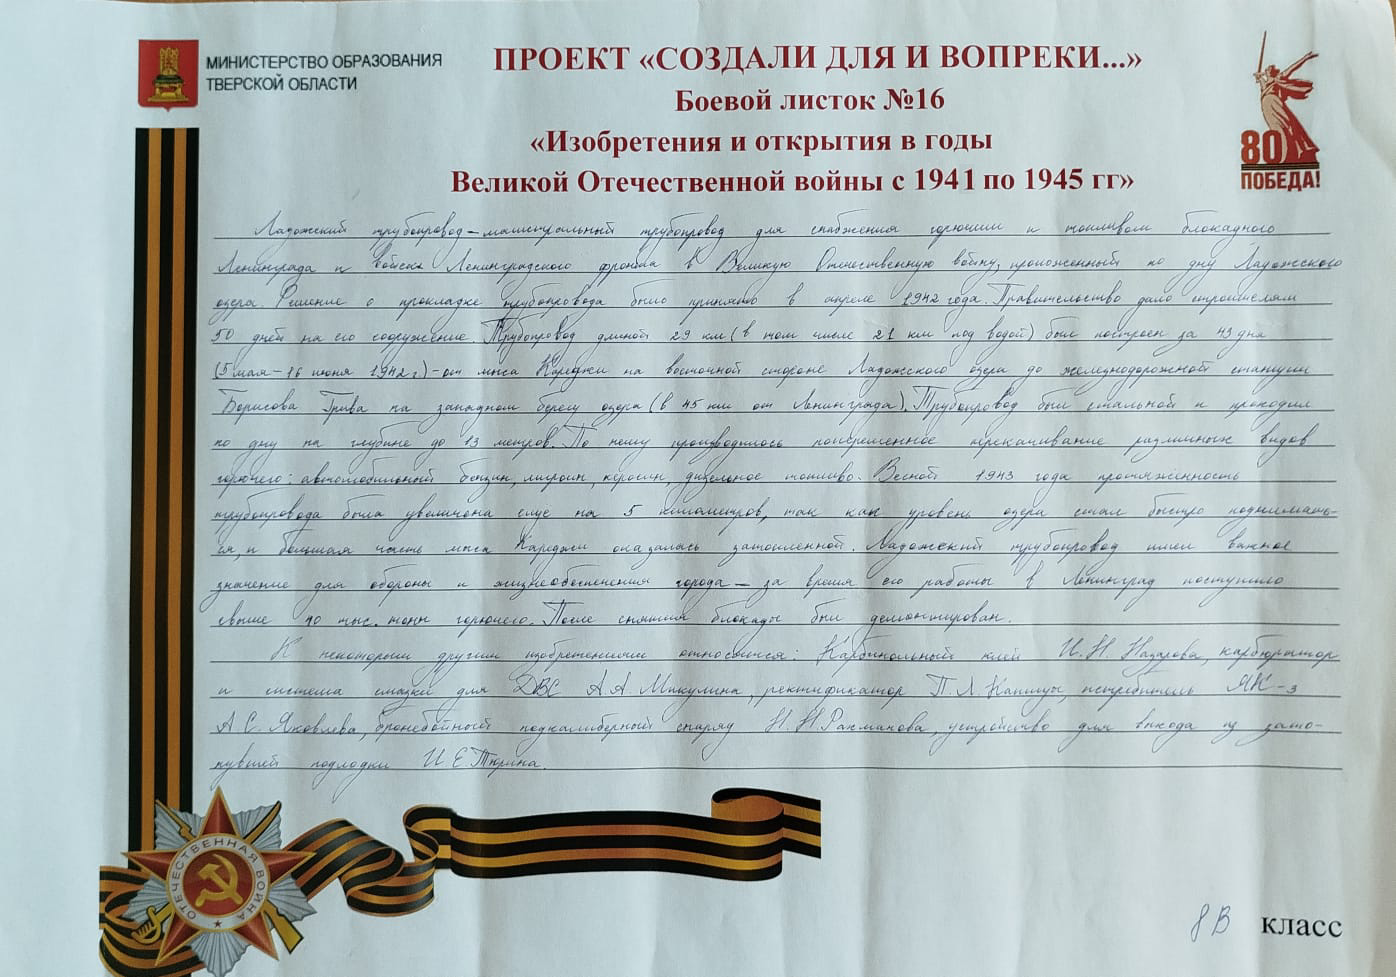 МИНИСТЕРСТВО ОБРАЗОВАНИЯ
ТВЕРСКОЙ ОБЛАСТИ
ПРОЕКТ «СОЗДАЛИ ДЛЯ И ВОПРЕКИ...»
Боевой листок №16
«Изобретения и открытия в годы
Великой Отечественной войны с 1941 по 1945 гг»
80
ПОБЕДА!
Ладожский трубопровод – магистральный трубопровод для снабжения горючим и топливом блокадного
Ленинграда и войск Ленинградского фронта в Великую Отечественную войну, проложенный по дну Ладожского
озера. Решение о прокладке трубопровода было принято в апреле 1942 года. Правительство дало строителям
50 дней на его сооружение. Трубопровод длиной 29 км (в том числе 21 км под водой) был построен за 43 дня
(5 мая – 16 июня 1942 г) – от мыса Кареджи на восточной стороне Ладожского озера до железнодорожной станции
Борисова Грива на западном берегу озера (в 45 км от Ленинграда). Трубопровод был стальной и проходил
по дну на глубине до 13 метров. По нему производилось попеременное перекачивание различных видов
горючего: автомобильный бензин, лигроин, керосин, дизельное топливо. Весной 1943 года протяжённость
трубопровода была увеличена еще на 5 километров, так как уровень озера стал быстро поднимать-
ся, и большая часть мыса Кареджи оказалась затопленной. Ладожский трубопровод имел важное
значение для обороны и жизнеобеспечения города – за время его работы в Ленинград поступило
свыше 40 тыс. тонн горючего. После снятия блокады был демонтирован.
К некоторым другим изобретениям относятся: Карбинольный клей И.Н. Назарова, карбюратор
и система смазки для ДВС А.А. Микулина, ректификатор П.Л. Капицы, истребитель ЯК-3
А.С. Яковлева, бронебойный подкалиберный снаряд И.Н. Рахманова, устройство для выхода из зато-
нувшей подлодки И.Е. Тюрина.
ОТЕЧЕСТВЕННАЯ ВОЙНА
8 В класс